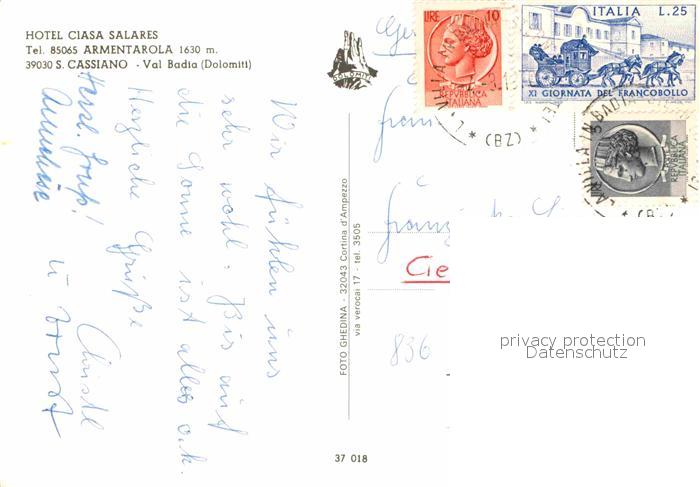 HOTEL CIASA SALARES
Tel. 85065 ARMENTAROLA 1630 m.
39030 S. CASSIANO - Val Badia (Dolomiti)
Wir fühlen uns
sehr wohl. Bis auf
die Sonne ist alles o.k.
Herzliche Grüße
Christl
u
Herzl. Gruß!
FOTO GHEDINA - 32043 Cortina d'Ampezzo
via verocai 17 - tel. 3505
37 018
LIRE 10
REPVBBLICA
ITALIANA
ITALIA L. 25
XI GIORNATA DEL FRANCOBOLLO
REPVBBLICA
ITALIANA
* (BZ) *
IN BADIA
Cie
836
privacy protection
Datenschutz